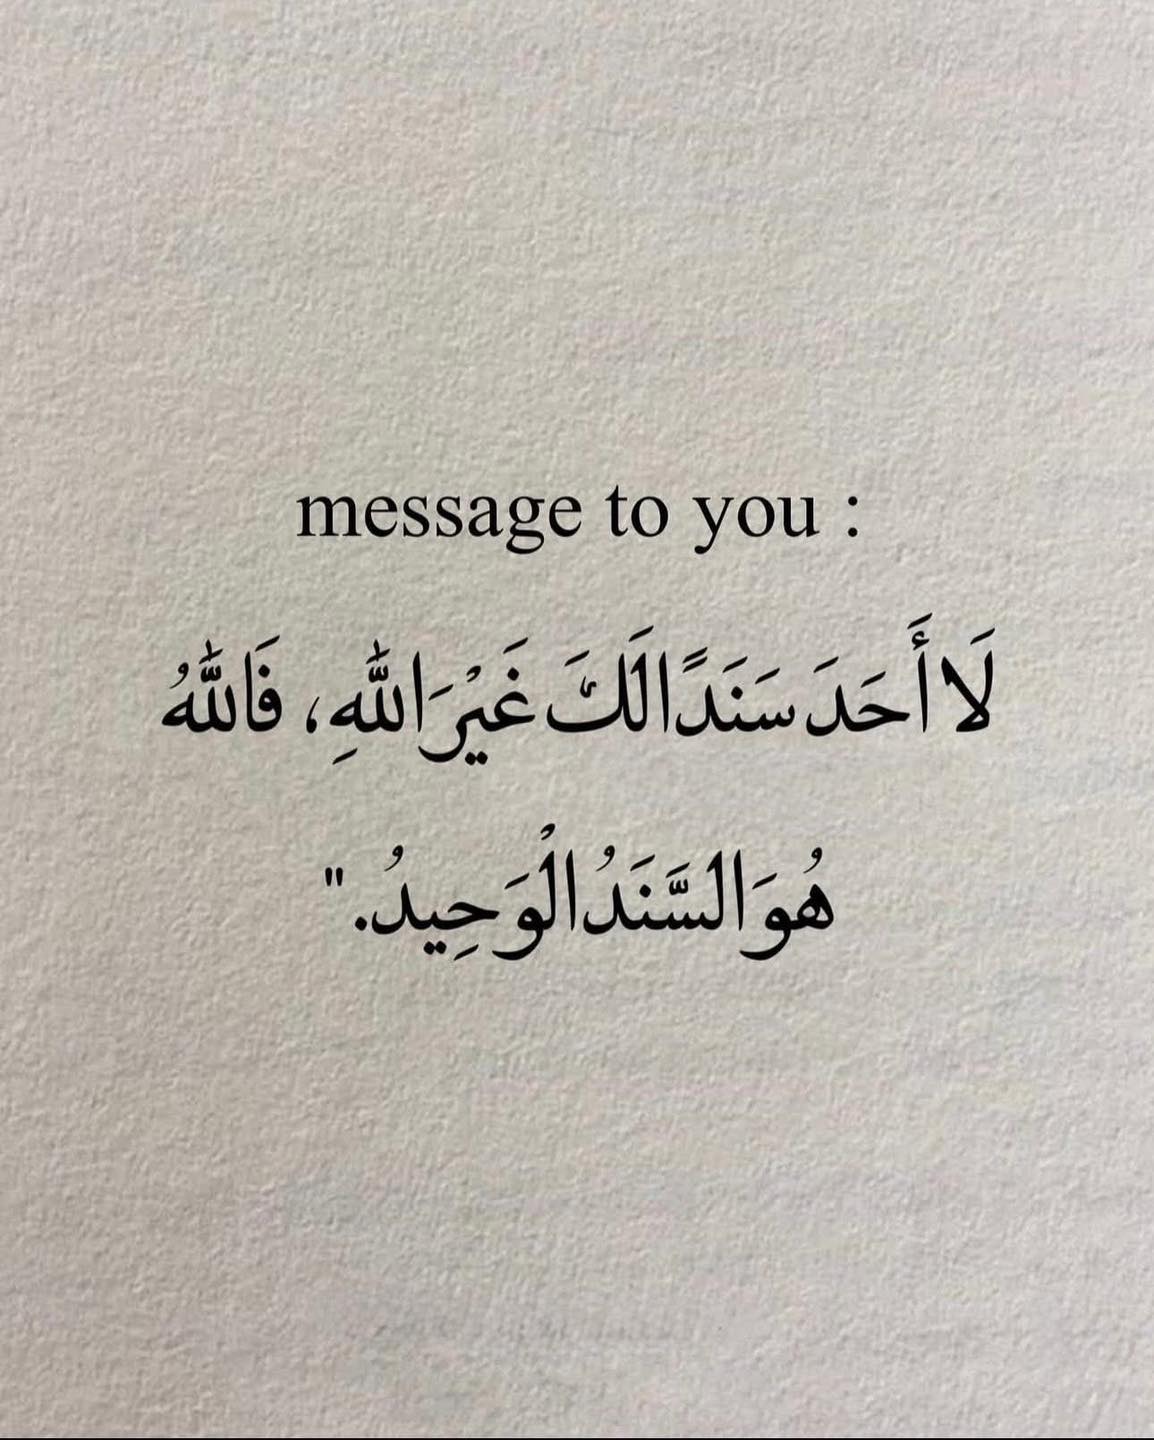 message to you :
لَا أَحَدَ سَنَدًا لَكَ غَيْرَ اللّٰهِ، فَاللّٰهُ
هُوَ السَّنَدُ الْوَحِيدُ."